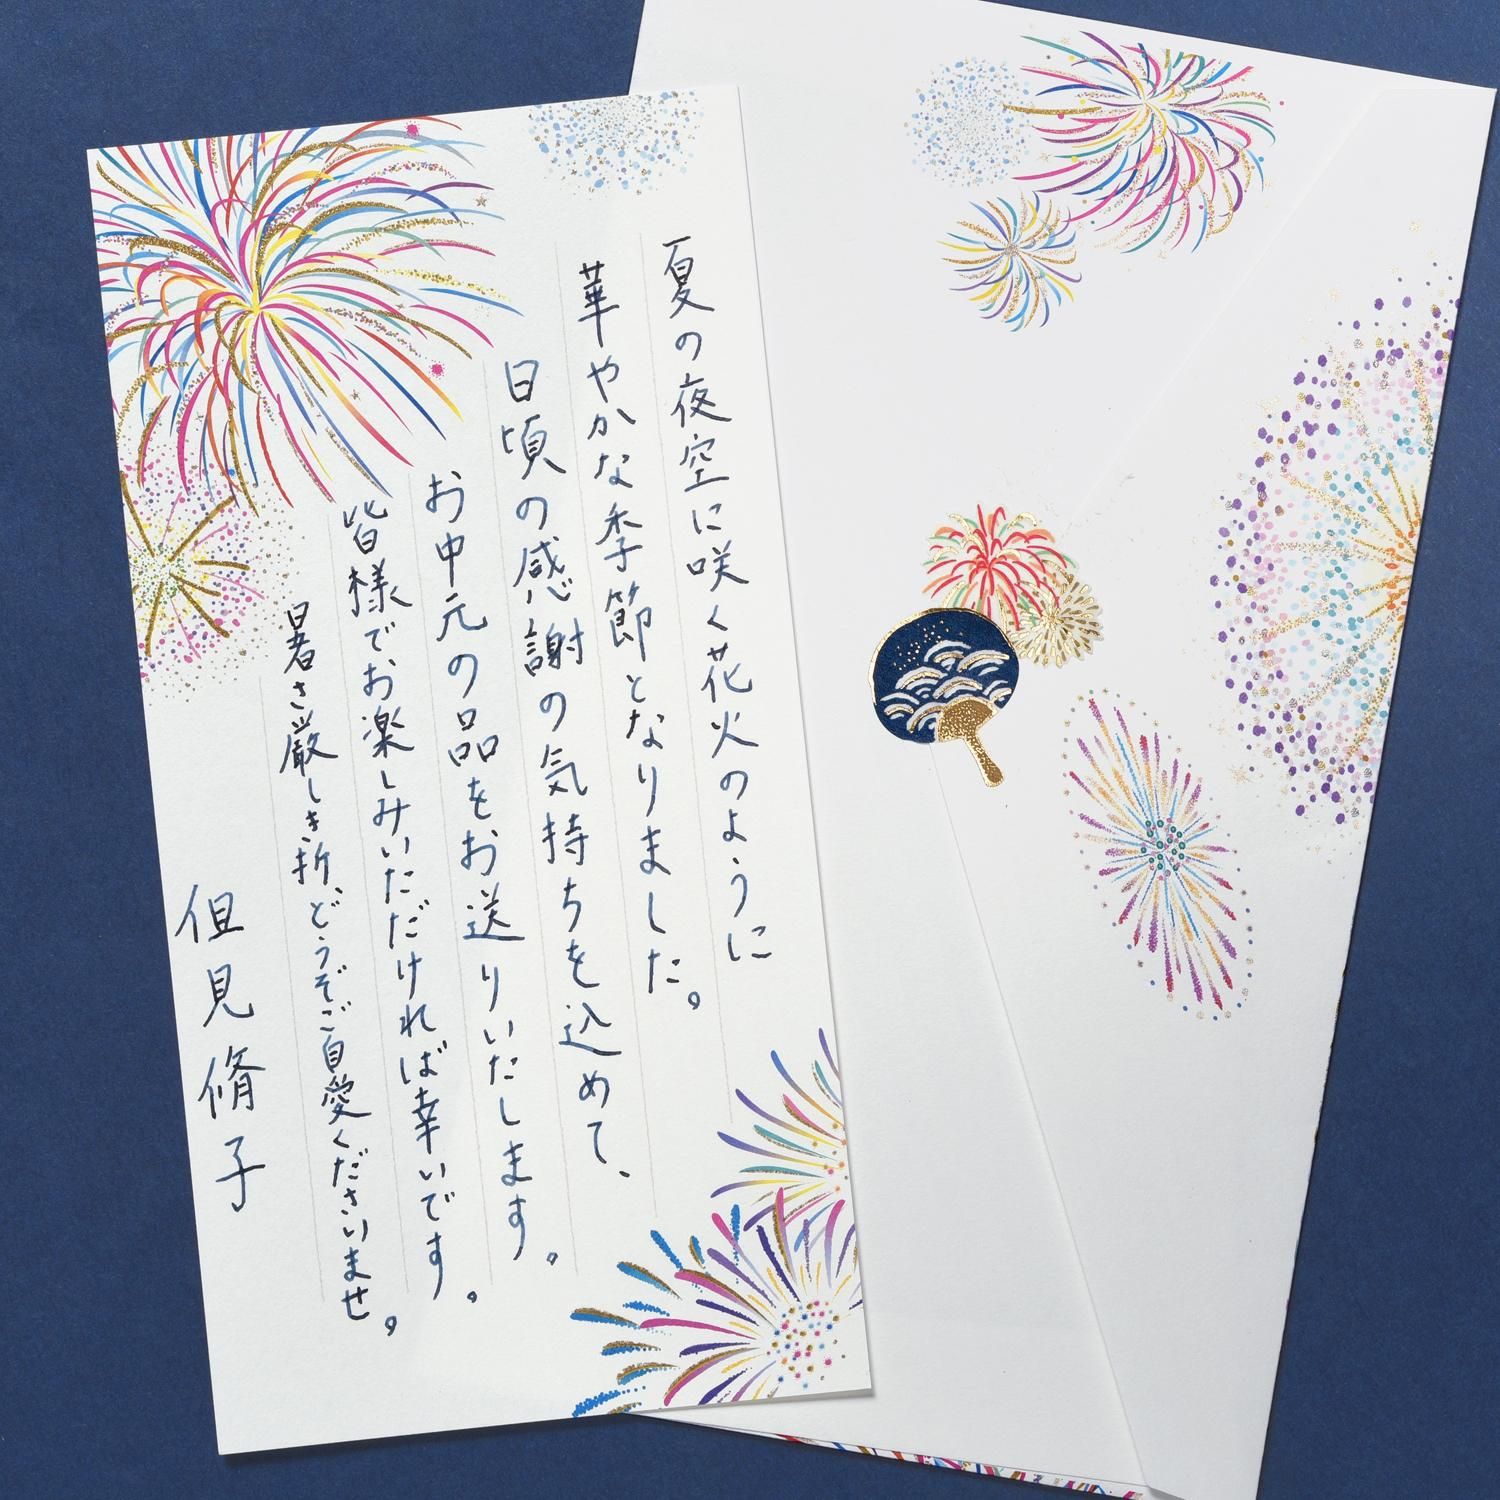 夏の夜空に咲く花火のように
華やかな季節となりました。
日頃の感謝の気持ちを込めて、
お中元の品をお送りいたします。
皆様でお楽しみいただければ幸いです。
暑さ厳しき折、どうぞご自愛くださいませ。
但見脩子